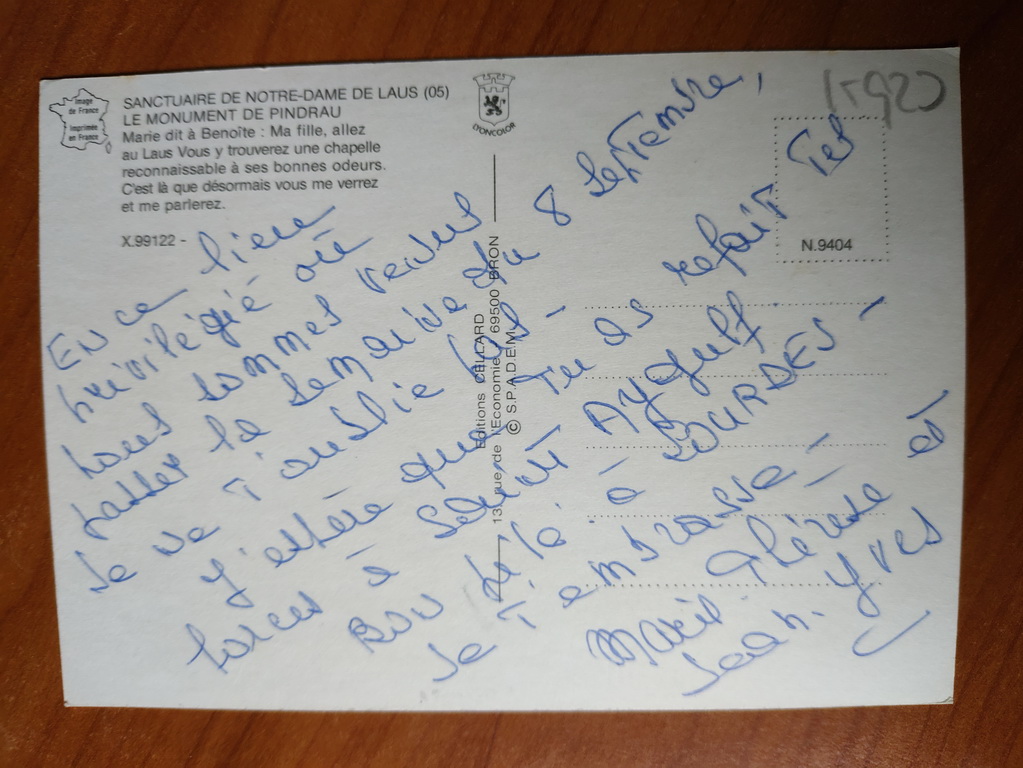 Image
de France
Imprimée
en France
SANCTUAIRE DE NOTRE-DAME DE LAUS (05)
LE MONUMENT DE PINDRAU
Marie dit à Benoîte : Ma fille, allez
au Laus Vous y trouverez une chapelle
reconnaissable à ses bonnes odeurs.
C'est là que désormais vous me verrez
et me parlerez.
X.99122 -
LYONCOLOR
Editions CELLARD
13, rue de l'Economie 69500 BRON
© S.P.A.D.E.M.
N.9404
EN ce lieu
privilégié où
nous sommes venus
passer la semaine du 8 septembre,
Je ne t'oublie pas -
J'espère que tu as refait tes
forces à Saint Aygulf.
Bon pélé à LOURDES -
Je t'embrasse -
Marie Thérèse et
Jean-Yves